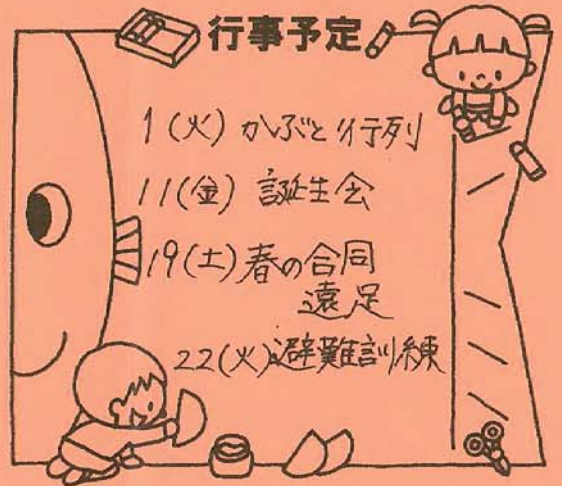 行事予定
1(火) かぶと行列
11(金) 誕生会
19(土) 春の合同
遠足
22(火) 避難訓練